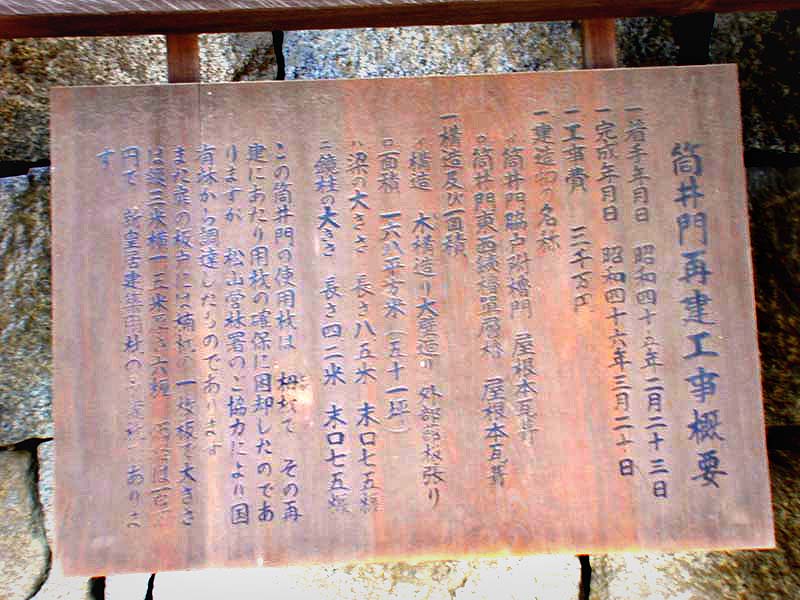 筒井門再建工事概要
一着手年月日 昭和四十五年二月二十三日
一完成年月日 昭和四十六年三月二十日
一工事費 三千万円
一建造物の名称
イ筒井門脇戸附櫓門 屋根本瓦葺
ロ筒井門東西続櫓単層櫓 屋根本瓦葺
一構造及び面積
イ構造 木構造り大壁造り 外部板張り
ロ面積 一六八平方米(五十一坪)
ハ梁の大きさ 長さ八五米 末口七五糎
ニ鏡柱の大きさ 長さ四二米 末口七五糎
この筒井門の使用材は 栂材で その再
建にあたり用材の確保に困却したのであ
りますが 松山営林署のご協力により国
有林から調達したものであります
また扉の板戸には楠材の一枚板で大きさ
は縦三米横一三米厚さ六糎
円で 新皇居建築用材の であります
す